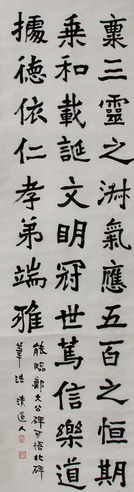 稟三靈之淋氣應五百之恒期
乘和載誕文眀冠世篤信樂道
據德依仁孝弟端雅
能臨鄭文公碑可悟北碑
筆法